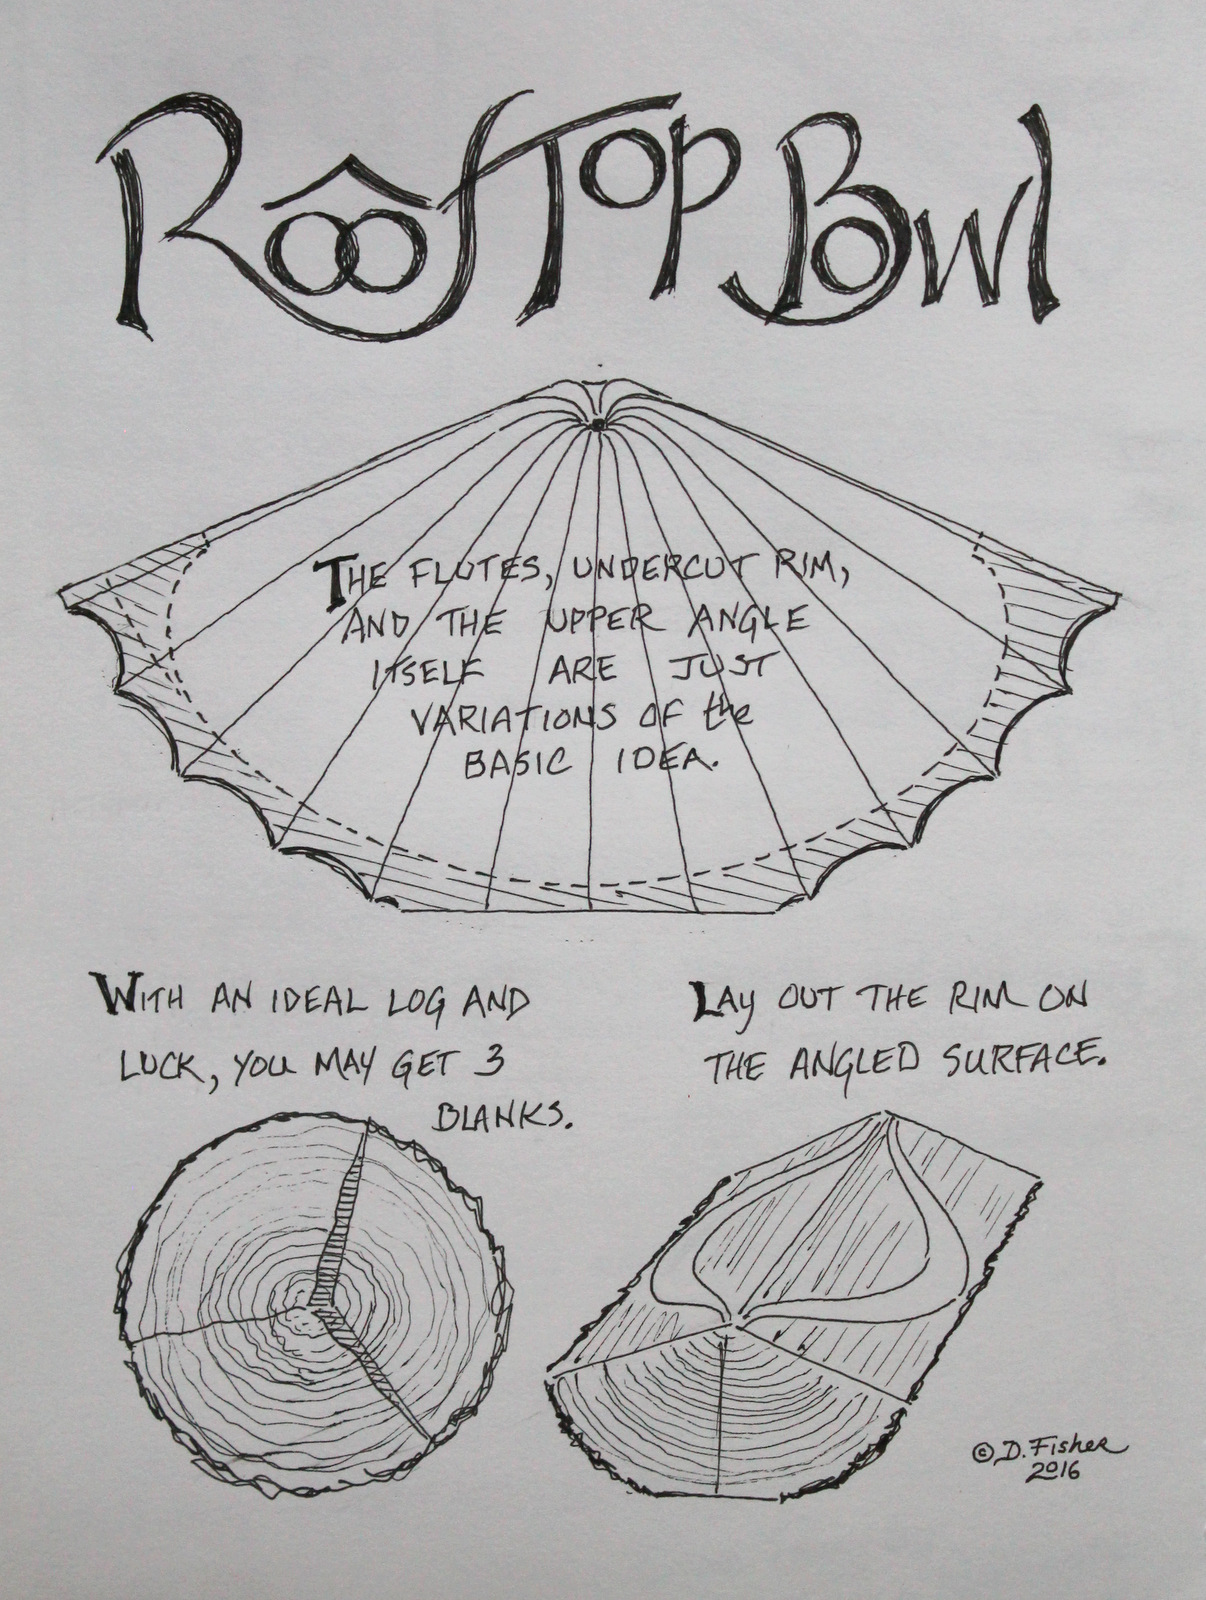 Rooftop Bowl
THE FLUTES, UNDERCUT RIM,
AND THE UPPER ANGLE
ITSELF ARE JUST
VARIATIONS OF the
BASIC IDEA.
WITH AN IDEAL LOG AND
LUCK, YOU MAY GET 3
BLANKS.
LAy OUT THE RIM ON
THE ANGLED SURFACE.
© D. Fisher
2016